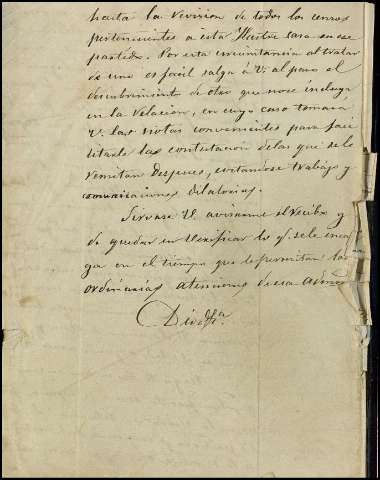 hasta la revision de todos los censos
pertenecientes a esta Ilustre casa en ese
partido. Por esta circunstancia al tratar
de uno es facil salga á V. al paso el
descubrimiento de otro que no se incluya
en la relacion, en cuyo caso tomará
V. las notas convenientes para faci
litarle la contestacion de las que se le
remitan despues, evitandose trabajo y
comunicaciones dilatorias.
Sirvase V. avisarme el recibo y
de quedar en verificar lo q. se le encar
ga en el tiempo que le permitan las
ordinarias atenciones de esa Admon
Dios &a.